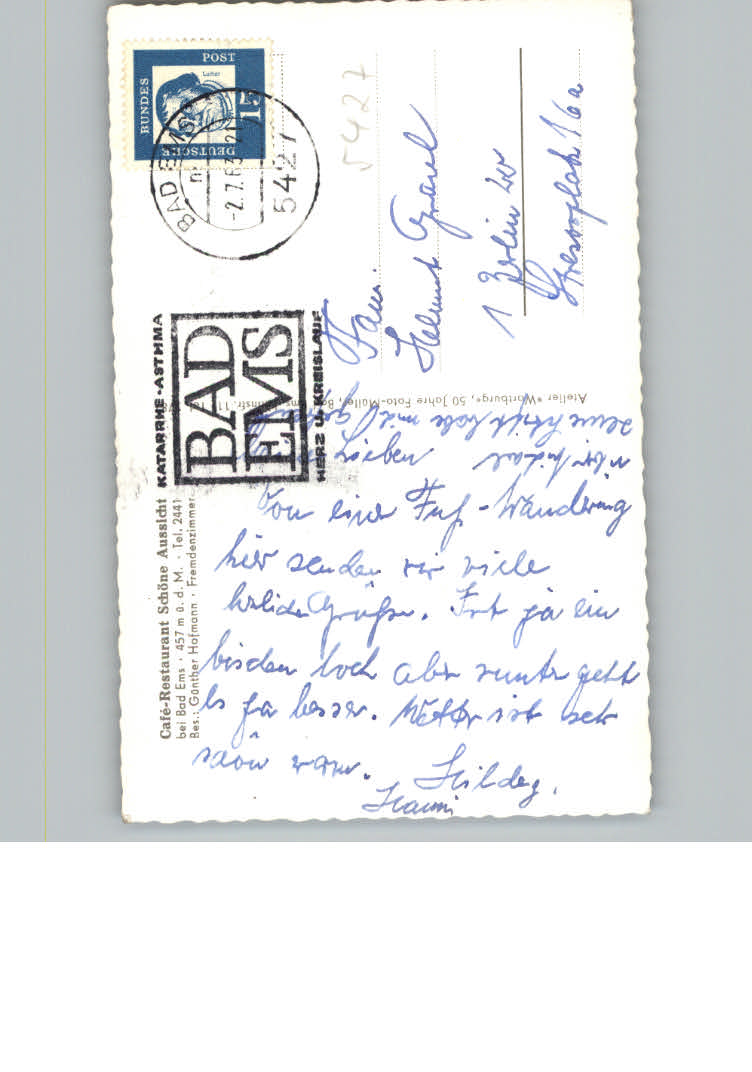 DEUTSCHE
BUNDES
POST
Luther
15
BAD EMS
-2.7.63-21
5427
5427
KATARRHE·ASTHMA
BAD
EMS
HERZ U. KREISLAUF
Fam.
Helmut
1 Berlin 20
16a
Café-Restaurant Schöne Aussicht
bei Bad Ems · 457 m ü. d. M. · Tel. 2441
Bes.: Günther Hofmann · Fremdenzimmer
Atelier »Wartburg«, 50 Jahre Foto-Müller, Bad Ems
Lieben
Von einer Fuß-Wanderung
hier senden wir viele
Grüße. Ist ja ein
bischen hoch aber runter geht
es ja besser. Wetter ist sehr
schön warm.
Hildeg.
Hanni